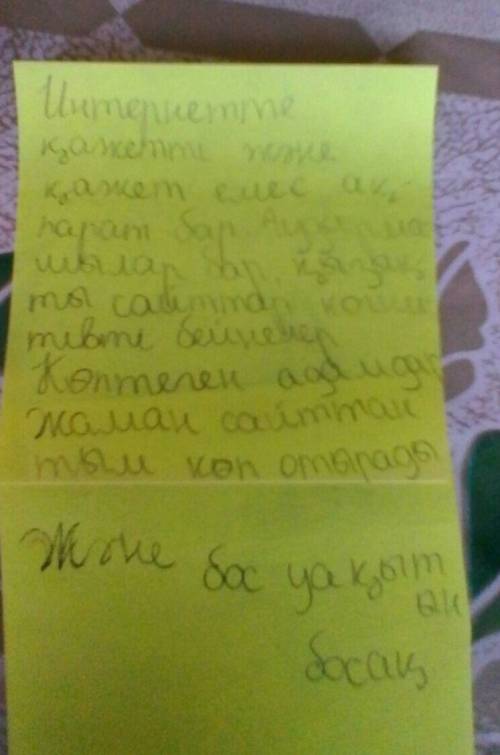 Интернетте
қажетті жже
қажет емес ақ-
парат бар.
шылар бар, қызық
ты сайттар
тивті бейнелер
Көптеген адамдар
жаман сайттан
тым көп отырады
Жже бос уақыт
ын
босақ